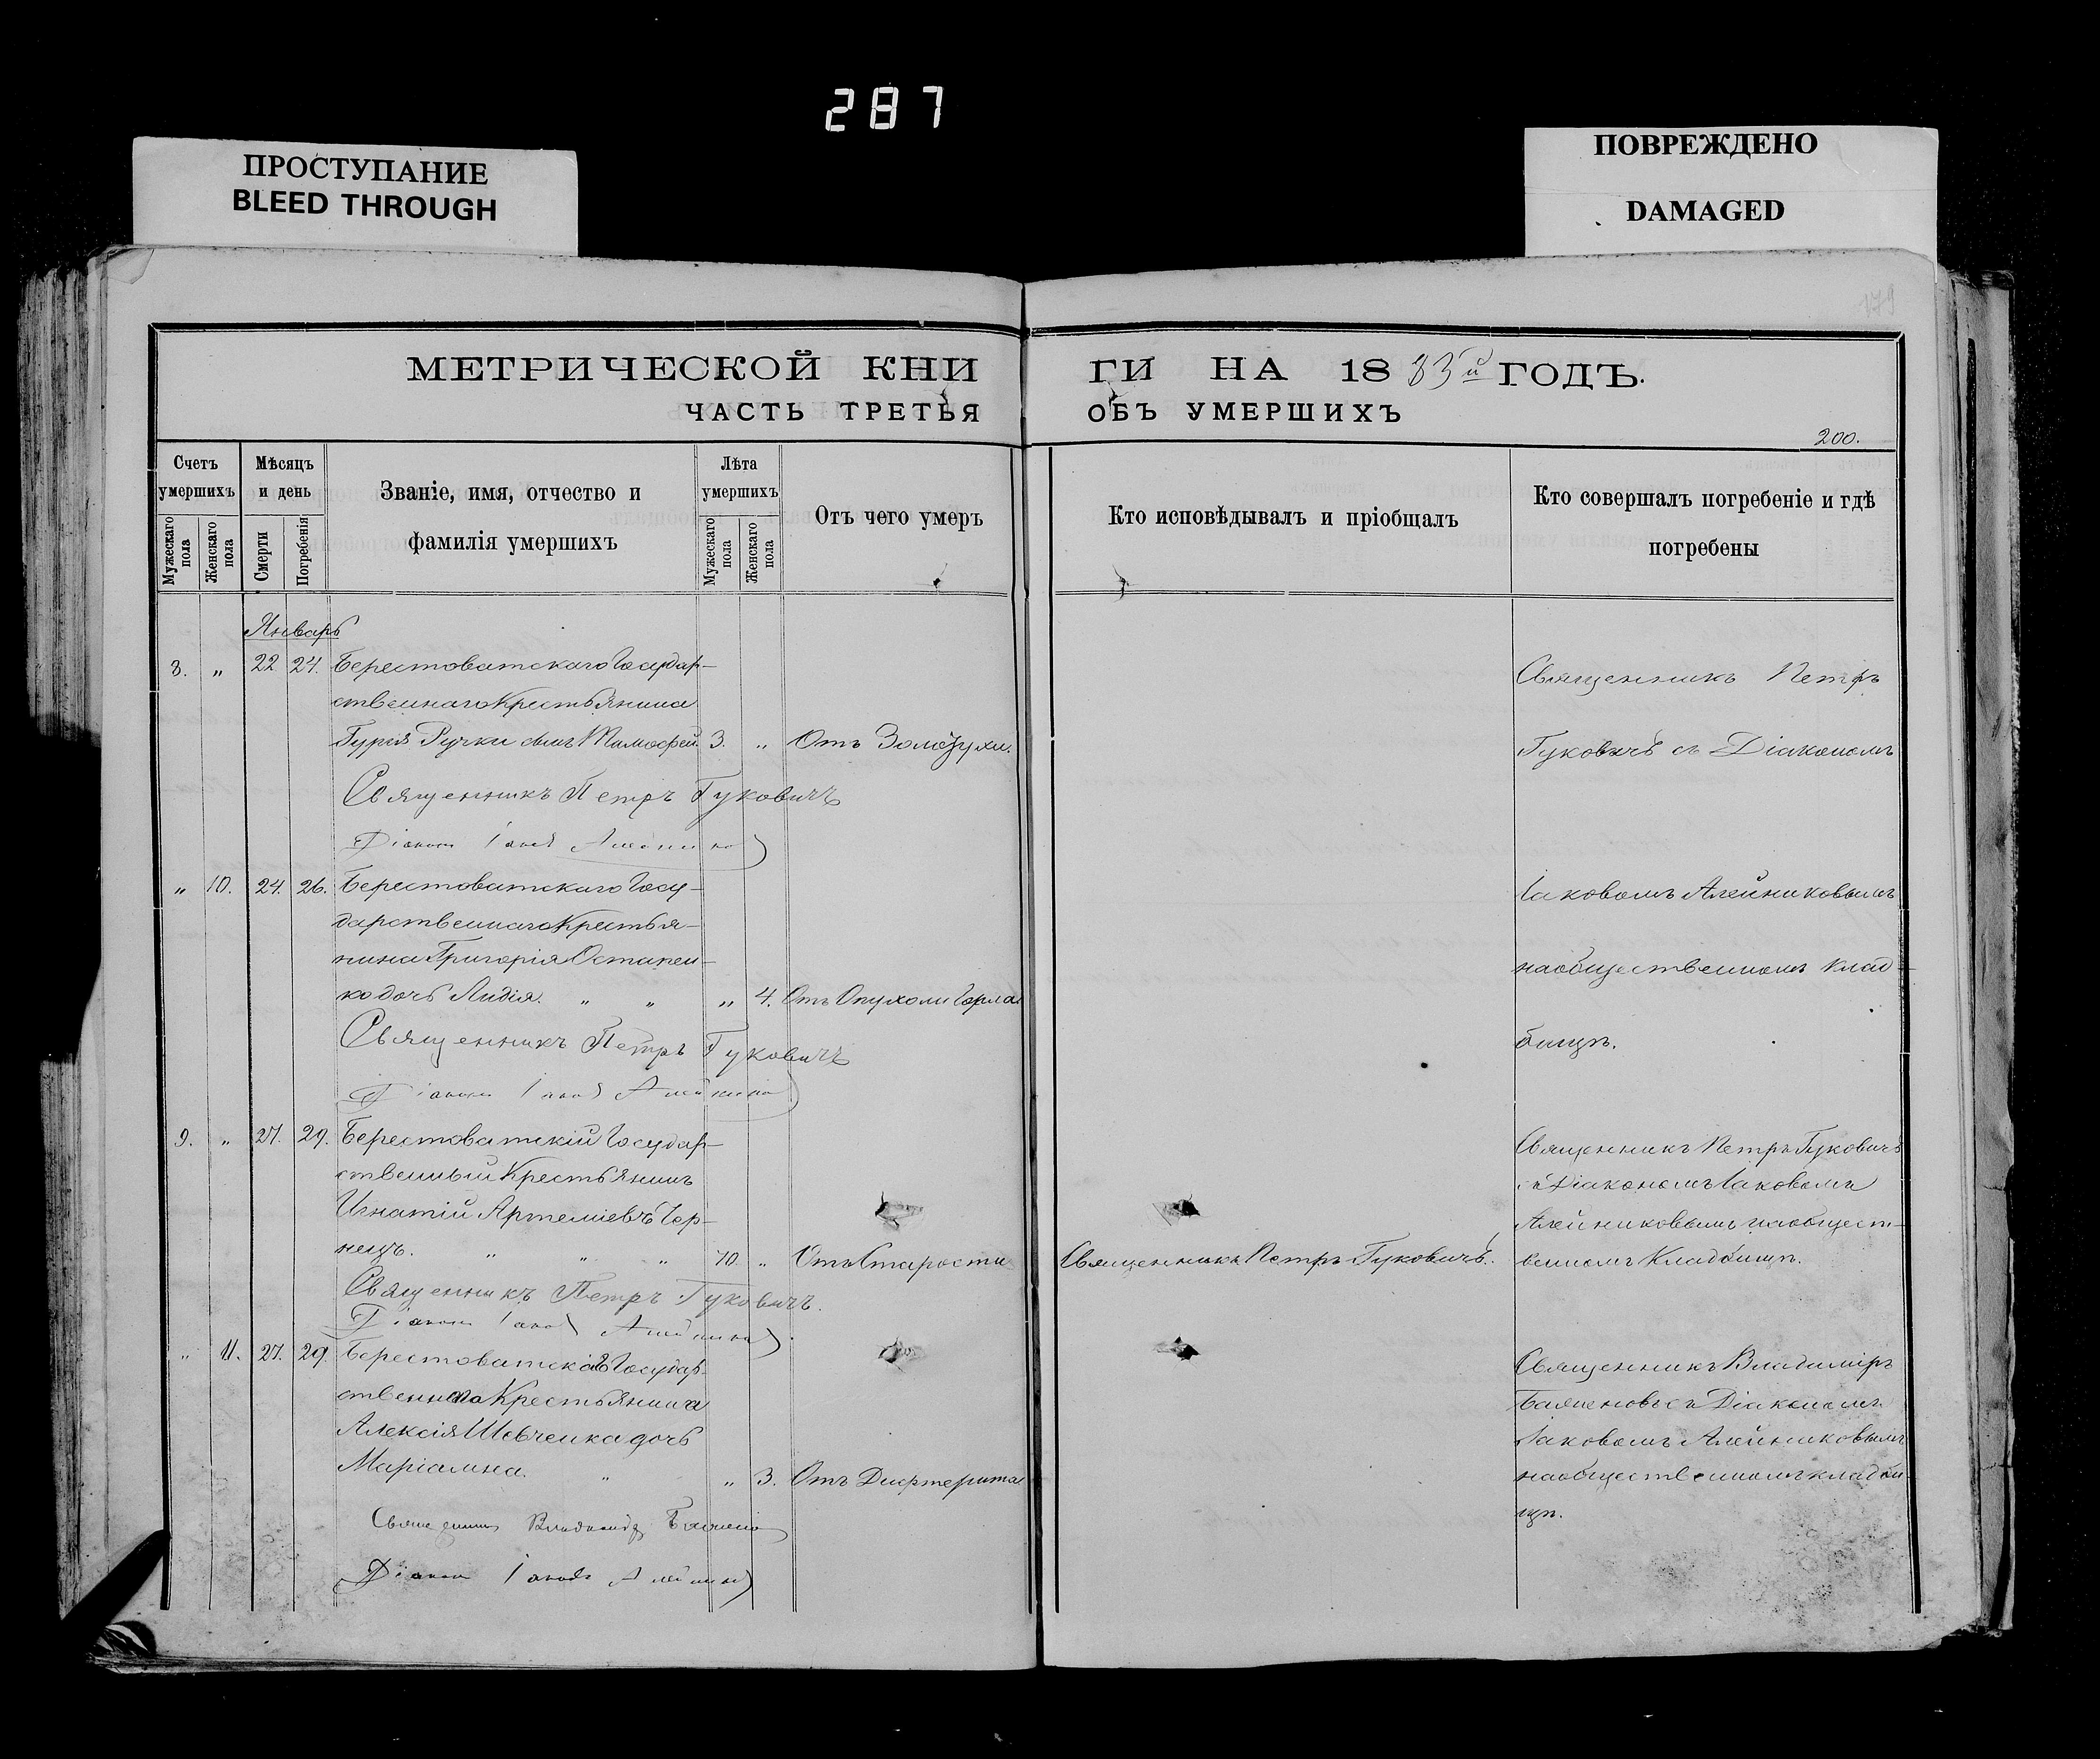 287
ПРОСТУПАНИЕ
BLEED THROUGH
ПОВРЕЖДЕНО
DAMAGED
179
МЕТРИЧЕСКОЙ КНИ
ЧАСТЬ ТРЕТЬЯ
ГИ НА 1883й ГОДЪ.
ОБЪ УМЕРШИХЪ
200.
Счетъ умершихъ
Мужескаго пола
Женскаго пола
Мѣсяцъ и день
Смерти
Погребенія
Званіе, имя, отчество и
фамилія умершихъ
Лѣта умершихъ
Мужескаго пола
Женскаго пола
Отъ чего умеръ
Кто исповѣдывалъ и пріобщалъ
Кто совершалъ погребеніе и гдѣ
погребены
Январь
8. „ 22 24. Берестоватскаго Государ-
ственнаго Крестьянина
Гурія Ручки сынъ Тимофей 3. „ Отъ Золотухи.
Священникъ Петръ Гуковичъ
Діаконъ Іаковъ Алейников
Священникъ Петръ
Гуковичъ съ Діакономъ
„ 10. 24. 26. Берестоватскаго Госу-
дарственнаго Крестья-
нина Григорія Остапен-
ко дочь Лидія. „ „ „ 4. Отъ Опухоли Горла
Священникъ Петръ Гуковичъ
Діаконъ Іаковъ Алейников
Іаковомъ Алейниковымъ
на общественномъ клад-
бищѣ.
9. „ 27. 29. Берестоватскій Государ-
ственный Крестьянинъ
Игнатій Артеміевъ Чер-
нецъ. „ „ „ 70. „ Отъ Старости
Священникъ Петръ Гуковичъ.
Священникъ Петръ Гуковичъ.
Діаконъ Іаковъ Алейников
Священникъ Петръ Гуковичъ
съ Діакономъ Іаковомъ
Алейниковымъ на общест-
венномъ Кладбищѣ.
„ 11. 27. 29. Берестоватскаго Государ-
ственнаго Крестьянина
Алексія Шевченка дочь
Маріамна. „ „ 3. Отъ Дифтерита
Священникъ Владиміръ
Діаконъ Іаковъ Алейников
Священникъ Владиміръ
съ Діакономъ
Іаковомъ Алейниковымъ
на общественномъ кладби-
щѣ.